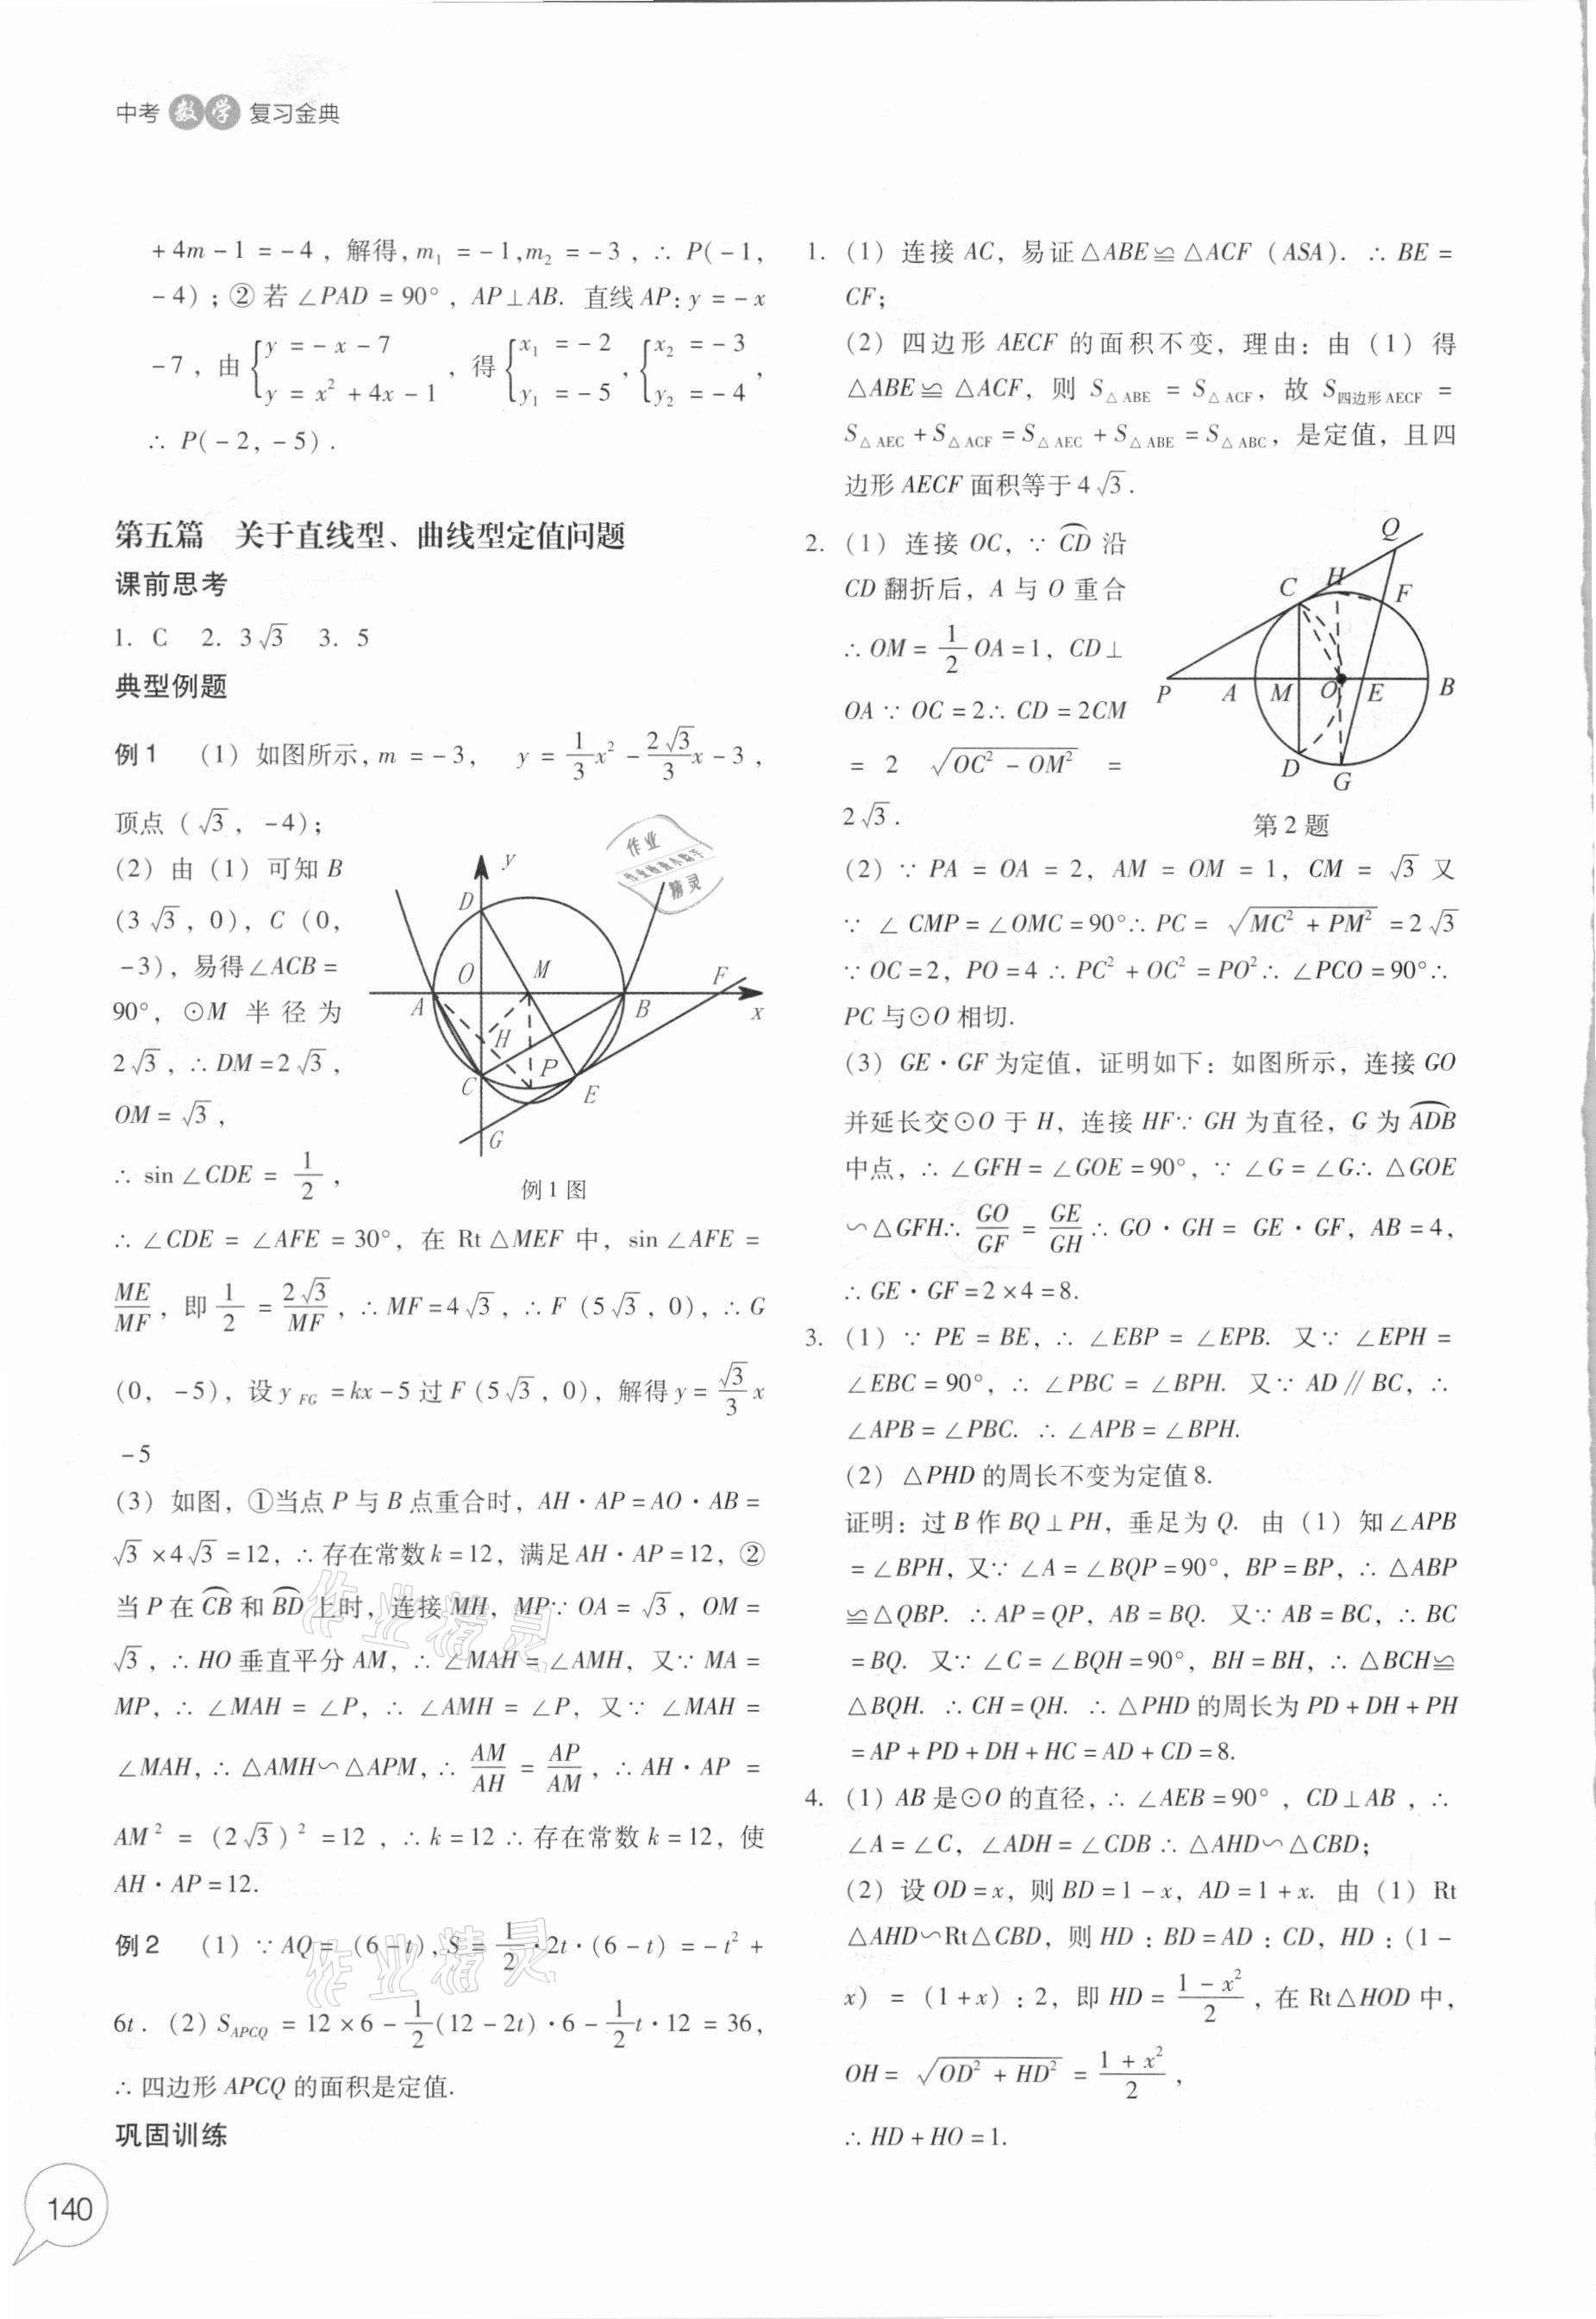 中考数学复习金典
+4m-1=-4，解得，m₁=-1,m₂=-3，∴ P(-1,
-4)；②若∠PAD=90°，AP⊥AB. 直线AP：y=-x
-7，由{y=-x-7, y=x²+4x-1，得{x₁=-2, y₁=-5，{x₂=-3, y₂=-4，
∴ P(-2,-5).
第五篇 关于直线型、曲线型定值问题
课前思考
1. C 2. 3√3 3. 5
典型例题
例1 (1) 如图所示，m=-3， y=1/3x²-2√3/3x-3，
顶点 (√3，-4)；
(2) 由 (1) 可知 B
(3√3，0)，C (0，
-3)，易得∠ACB=
90°，⊙M 半径为
2√3，∴DM=2√3，
OM=√3，
∴ sin∠CDE=1/2，
y
D
O
M
F
A
B
x
H
C
P
E
G
例1图
∴∠CDE=∠AFE=30°，在 Rt△MEF 中，sin∠AFE=
ME/MF，即1/2=2√3/MF，∴MF=4√3，∴F (5√3，0)，∴G
(0，-5)，设y_FG=kx-5过F (5√3，0)，解得y=√3/3x
-5
(3) 如图，①当点P与B点重合时，AH·AP=AO·AB=
√3×4√3=12，∴存在常数k=12，满足AH·AP=12，②
当P在⌒CB和⌒BD上时，连接MH，MP∵OA=√3，OM=
√3，∴HO垂直平分AM，∴∠MAH=∠AMH，又∵MA=
MP，∴∠MAH=∠P，∴∠AMH=∠P，又∵∠MAH=
∠MAH，∴△AMH∽△APM，∴AM/AH=AP/AM，∴AH·AP=
AM²=(2√3)²=12，∴k=12∴存在常数k=12，使
AH·AP=12.
例2 (1) ∵AQ=(6-t)，S=1/2·2t·(6-t)=-t²+
6t. (2) S_APCQ=12×6-1/2(12-2t)·6-1/2t·12=36，
∴四边形APCQ的面积是定值.
巩固训练
1. (1) 连接AC，易证△ABE≌△ACF (ASA). ∴BE=
CF；
(2) 四边形AECF的面积不变，理由：由 (1) 得
△ABE≌△ACF，则S△ABE=S△ACF，故S四边形AECF=
S△AEC+S△ACF=S△AEC+S△ABE=S△ABC，是定值，且四
边形AECF面积等于4√3.
2. (1) 连接OC，∵⌒CD沿
CD翻折后，A与O重合
∴OM=1/2OA=1，CD⊥
OA∵OC=2∴CD=2CM
=2√(OC²-OM²)=
2√3.
Q
H
C
F
P
A
M
O
E
B
D
G
第2题
(2) ∵PA=OA=2，AM=OM=1，CM=√3又
∵∠CMP=∠OMC=90°∴PC=√(MC²+PM²)=2√3
∵OC=2，PO=4∴PC²+OC²=PO²∴∠PCO=90°∴
PC与⊙O相切.
(3) GE·GF为定值，证明如下：如图所示，连接GO
并延长交⊙O于H，连接HF∵GH为直径，G为⌒ADB
中点，∴∠GFH=∠GOE=90°，∵∠G=∠G∴△GOE
∽△GFH∴GO/GF=GE/GH∴GO·GH=GE·GF，AB=4，
∴GE·GF=2×4=8.
3. (1) ∵PE=BE，∴∠EBP=∠EPB. 又∵∠EPH=
∠EBC=90°，∴∠PBC=∠BPH. 又∵AD∥BC，∴
∠APB=∠PBC. ∴∠APB=∠BPH.
(2) △PHD的周长不变为定值8.
证明：过B作BQ⊥PH，垂足为Q. 由 (1) 知∠APB
=∠BPH，又∵∠A=∠BQP=90°，BP=BP，∴△ABP
≌△QBP. ∴AP=QP，AB=BQ. 又∵AB=BC，∴BC
=BQ. 又∵∠C=∠BQH=90°，BH=BH，∴△BCH≌
△BQH. ∴CH=QH. ∴△PHD的周长为PD+DH+PH
=AP+PD+DH+HC=AD+CD=8.
4. (1) AB是⊙O的直径，∴∠AEB=90°，CD⊥AB，∴
∠A=∠C，∠ADH=∠CDB∴△AHD∽△CBD；
(2) 设OD=x，则BD=1-x，AD=1+x. 由 (1) Rt
△AHD∽Rt△CBD，则HD：BD=AD：CD，HD：(1-
x)=(1+x)：2，即HD=(1-x²)/2，在Rt△HOD中，
OH=√(OD²+HD²)=(1+x²)/2，
∴HD+HO=1.
140
作业精灵
作业精灵
作业
精灵